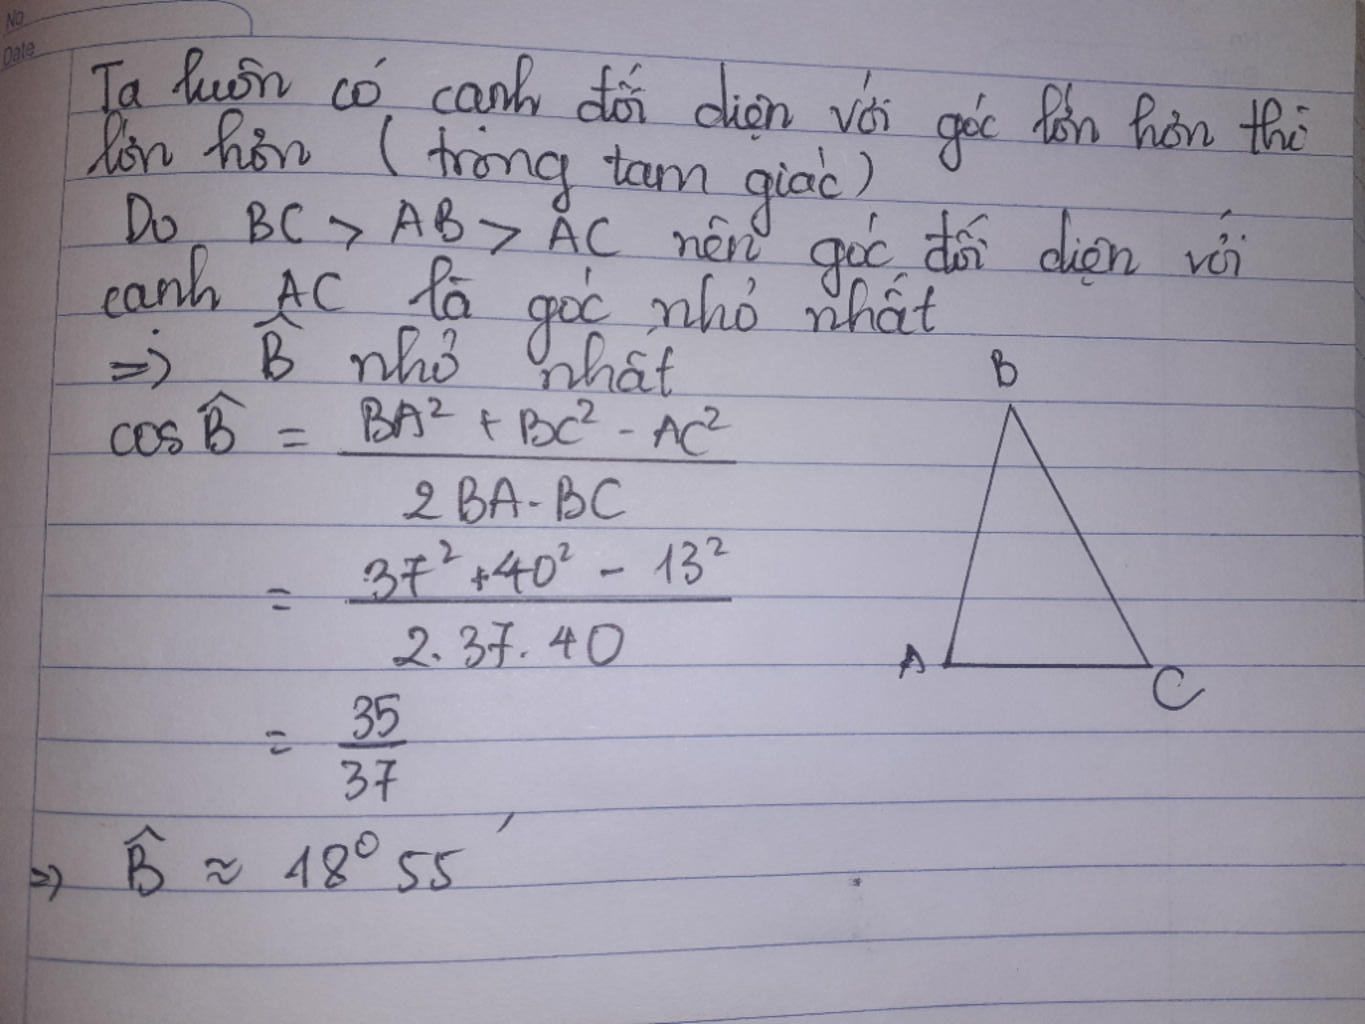 No
Date
Ta luôn có canh đối diện với góc lớn hơn thì
lớn hơn (trong tam giác)
Do BC > AB > AC nên góc đối diện với
canh AC là góc nhỏ nhất
=> B̂ nhỏ nhất
cos B̂ = BA² + BC² - AC²
2 BA . BC
= 37² + 40² - 13²
2. 37. 40
= 35
37
=> B̂ ≈ 18° 55'
B
A
C